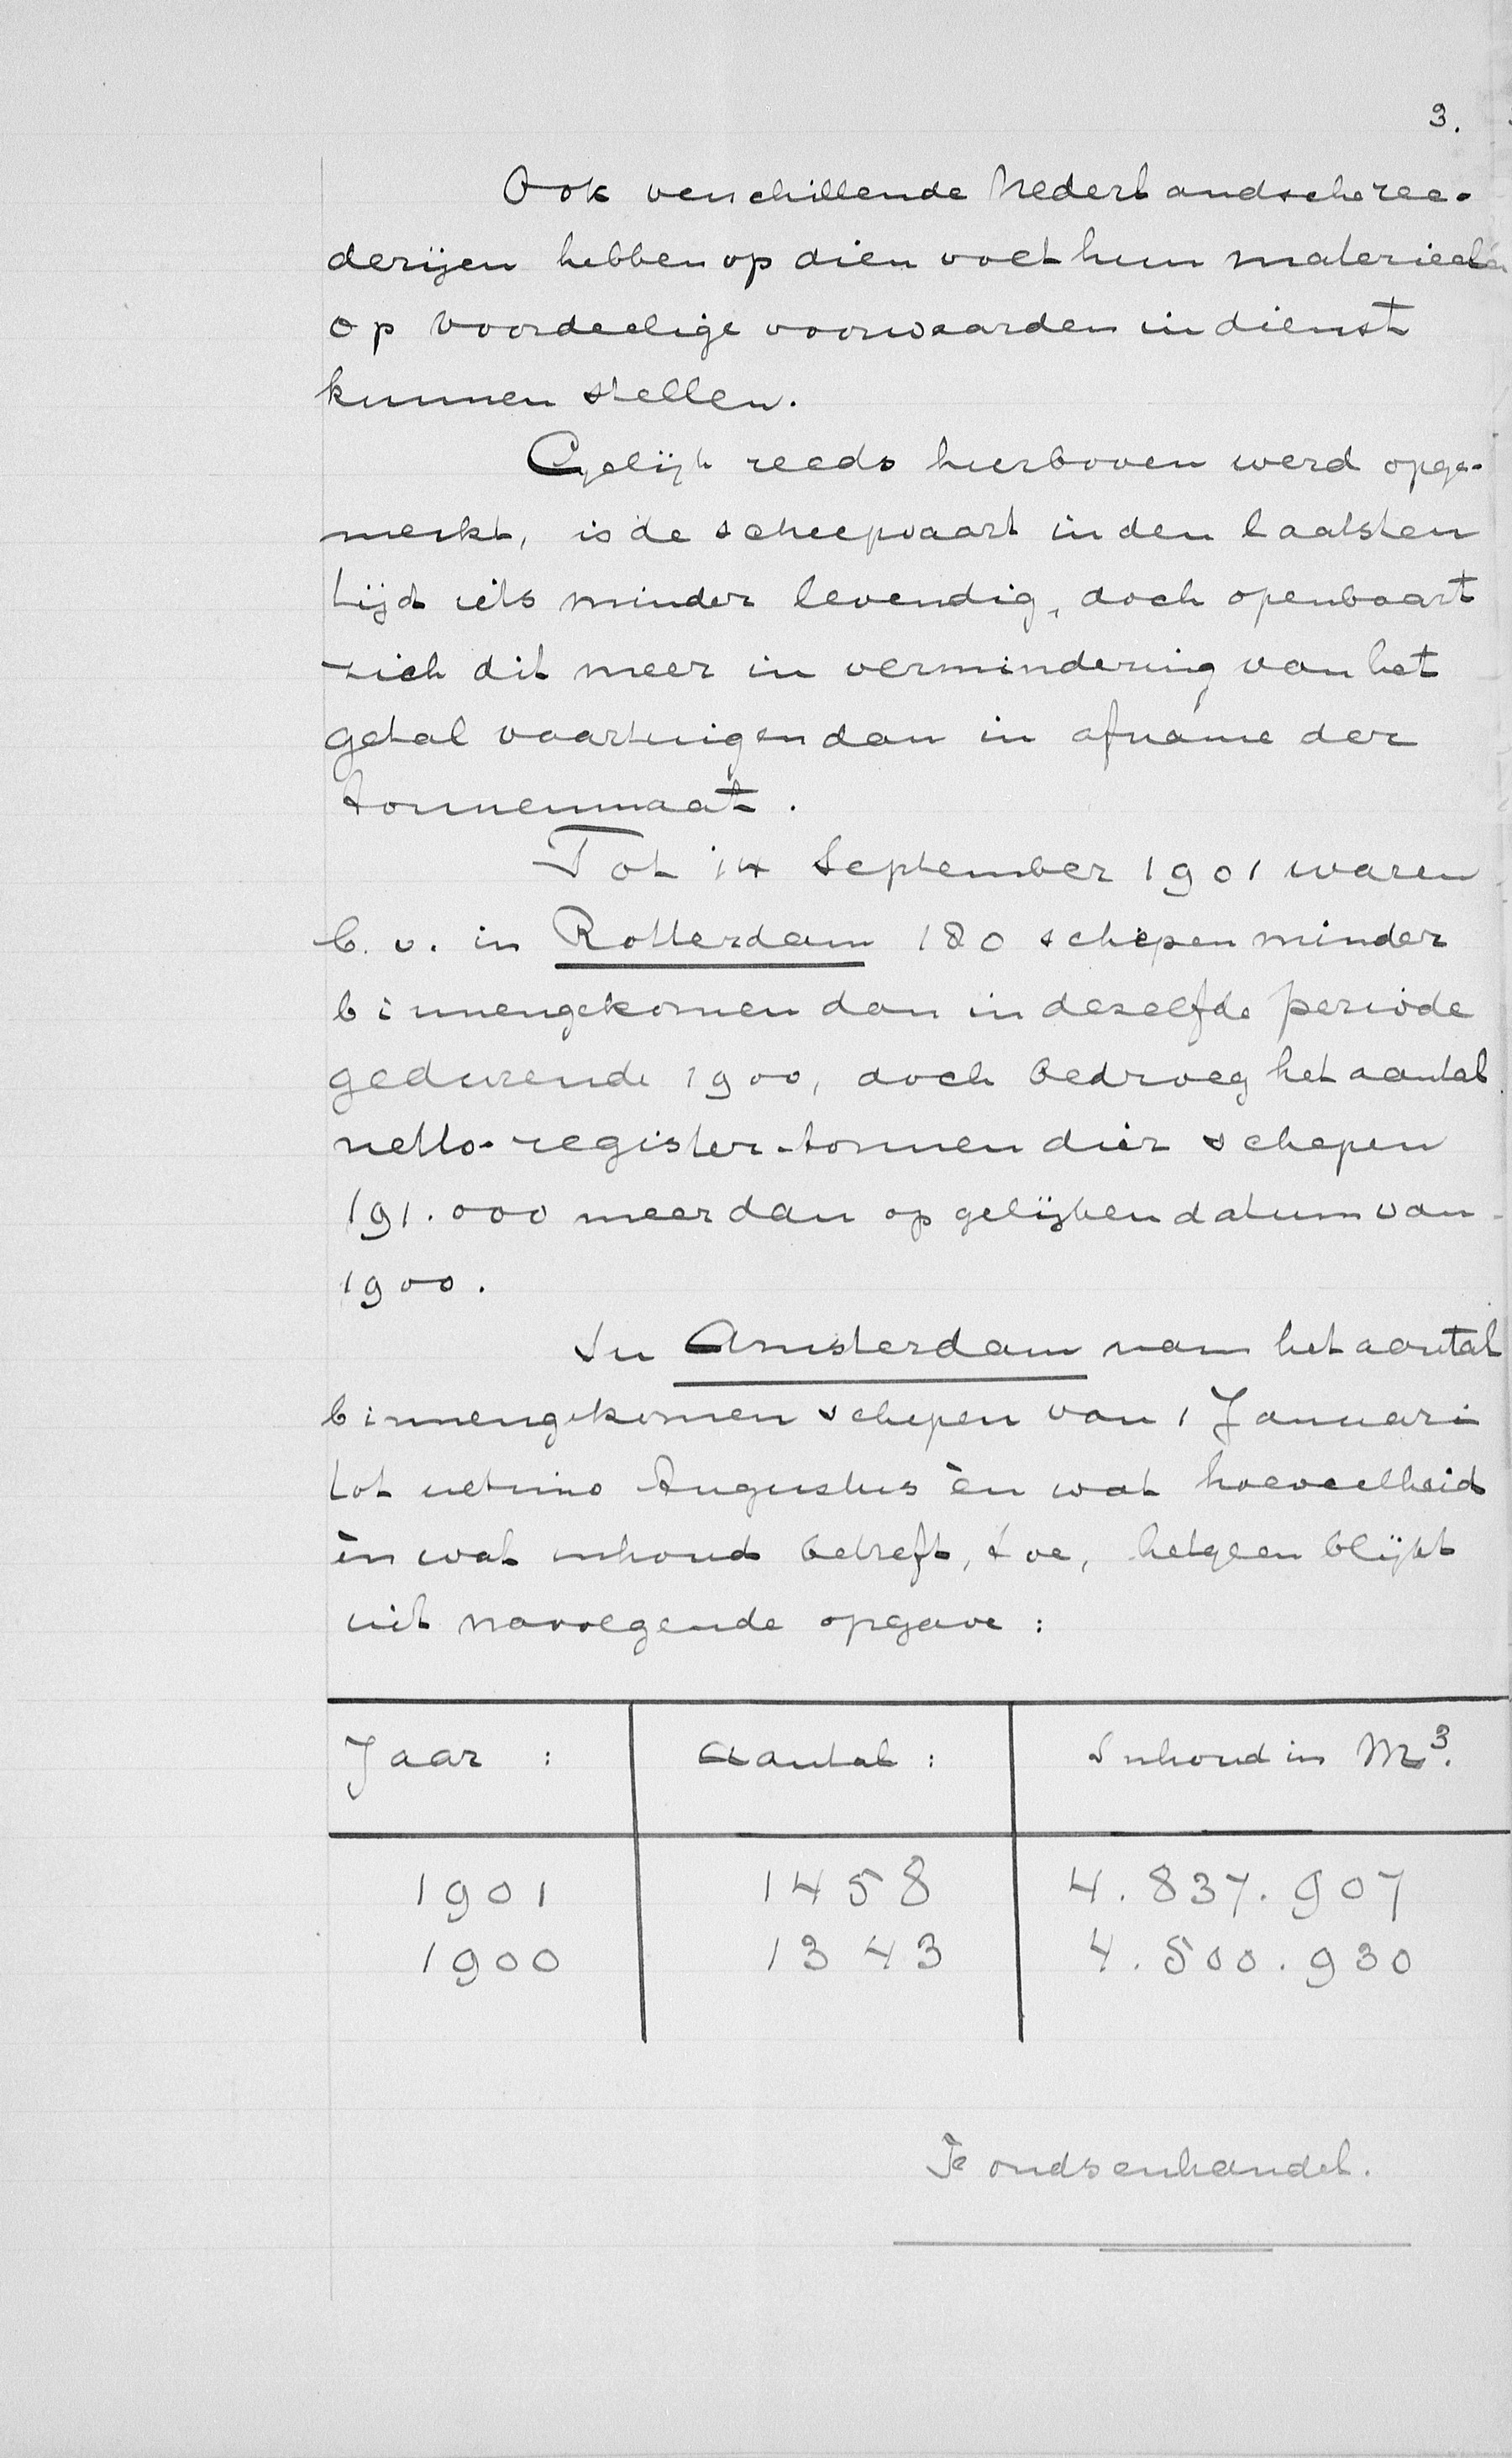 3.
Ook verschillende Nederlandsche ree-
derijen hebben op dien voet hun materieel
op voordeelige voorwaarden in dienst
kunnen stellen.
Gelijk reeds hierboven werd opge-
merkt, is de scheepvaart in den laatsten
tijd iets minder levendig, doch openbaart
zich dit meer in vermindering van het
getal vaartuigen dan in afname der
tonnenmaat.
Tot 14 September 1901 waren
b.v. in Rotterdam 180 schepen minder
binnengekomen dan in dezelfde periode
gedurende 1900, doch bedroeg het aantal
netto-register-tonnen dier schepen
191.000 meer dan op gelijken datum van
1900.
In Amsterdam nam het aantal
binnengekomen schepen van 1 Januari
tot ultimo Augustus èn wat hoeveelheid
èn wat inhoud betreft, toe, hetgeen blijkt
uit navolgende opgave:
Jaar : Aantal : Inhoud in M³.
1901 1458 4.837.907
1900 1343 4.500.930
Fondsenhandel.